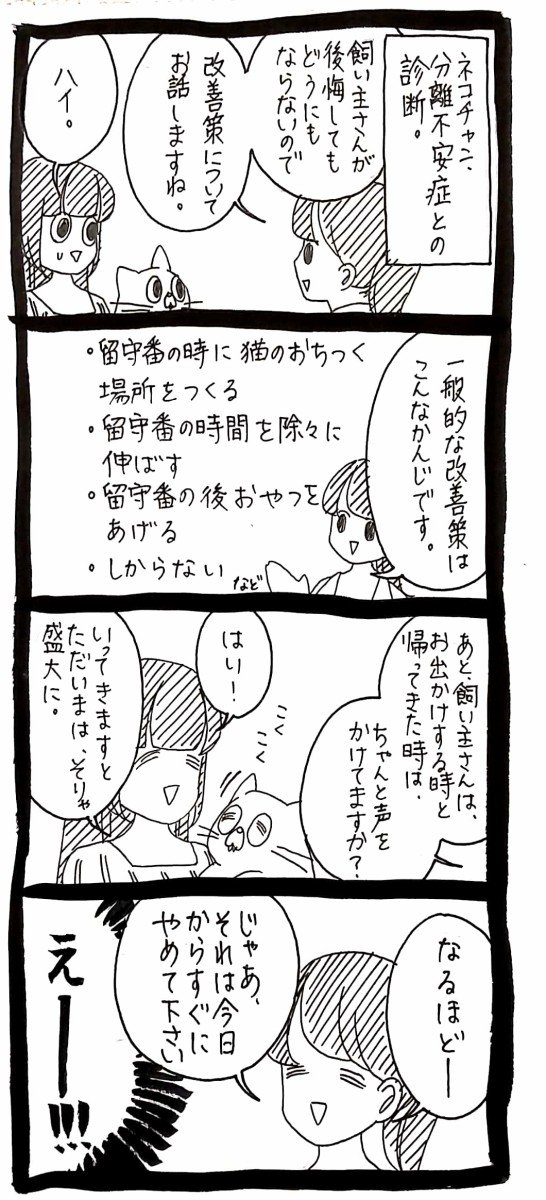 ネコチャン、
分離不安症との
診断。
飼い主さんが
後悔しても
どうにも
ならないので
改善策について
お話しますね。
ハイ。
一般的な改善策は
こんなかんじです。
・留守番の時に猫のおちつく
場所をつくる
・留守番の時間を除々に
伸ばす
・留守番の後おやつを
あげる
・しからない
など
あと、飼い主さんは、
お出かけする時と
帰ってきた時は、
ちゃんと声を
かけてますか?
はい!
こくこく
いってきますと
ただいまは、そりゃ
盛大に。
なるほどー
じゃあ、
それは今日
からすぐに
やめて下さい
えー!!!